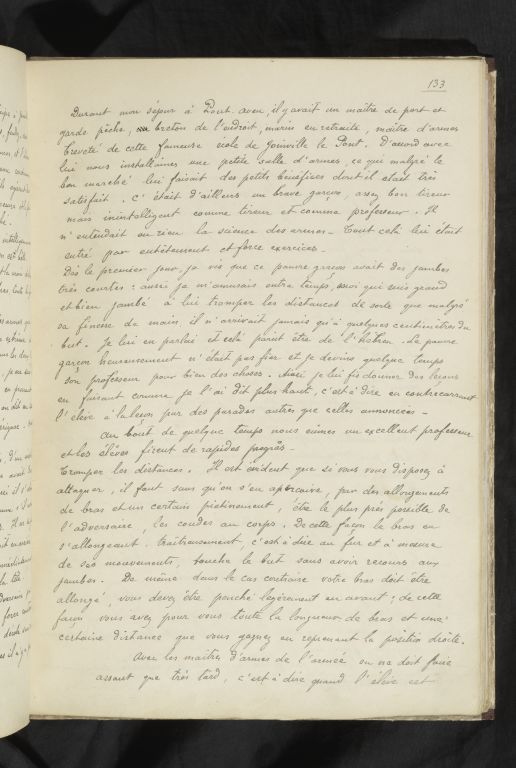 133
Durant mon séjour à Pont-aven, il y avait un maître de port et
garde pêche, breton de l'endroit, marin en retraite, maître d'armes
breveté de cette fameuse école de Joinville le Pont. D'accord avec
lui nous installâmes une petite salle d'armes, ce qui malgré le
bon marché lui faisait des petits bénéfices dont il était très
satisfait. C'était d'ailleurs un brave garçon, assez bon tireur
mais inintelligent comme tireur et comme professeur. Il
n'entendait en rien la science des armes. Tout cela lui était
entré par entêtement et force exercices.
Dès le premier jour, je vis que ce pauvre garçon avait des jambes
très courtes : aussi je m'amusais entre temps, moi qui suis grand
et bien jambé à lui tromper les distances de sorte que malgré
sa finesse de main il n'arrivait jamais qu'à quelques centimètres du
but. Je lui en parlai et cela parut être de l'hébreu. Le pauvre
garçon heureusement n'était pas fier et je devins quelque temps
son professeur pour bien des choses. Ainsi je lui fis donner des leçons
en faisant comme je l'ai dit plus haut, c'est à dire en contrecarrant
l'élève à la leçon par des parades autres que celles annoncées -
Au bout de quelque temps nous eûmes un excellent professeur
et les élèves firent de rapides progrès -
Tromper les distances. Il est évident que si vous vous disposez à
attaquer, il faut sans qu'on s'en aperçoive, par des allongements
de bras et un certain piétinement, être le plus près possible de
l'adversaire, les coudes au corps. De cette façon le bras en
s'allongeant traitreusement, c'est à dire au fur et à mesure
de ses mouvements, touche le but sans avoir recours aux
jambes. De même dans le cas contraire votre bras doit être
allongé, vous devez être penché légèrement en avant ; de cette
façon vous avez pour vous toute la longueur de bras et une
certaine distance que vous gagnez en reprenant la position droite.
Avec les maîtres d'armes de l'armée on ne doit faire
assaut que très tard, c'est à dire quand l'élève est